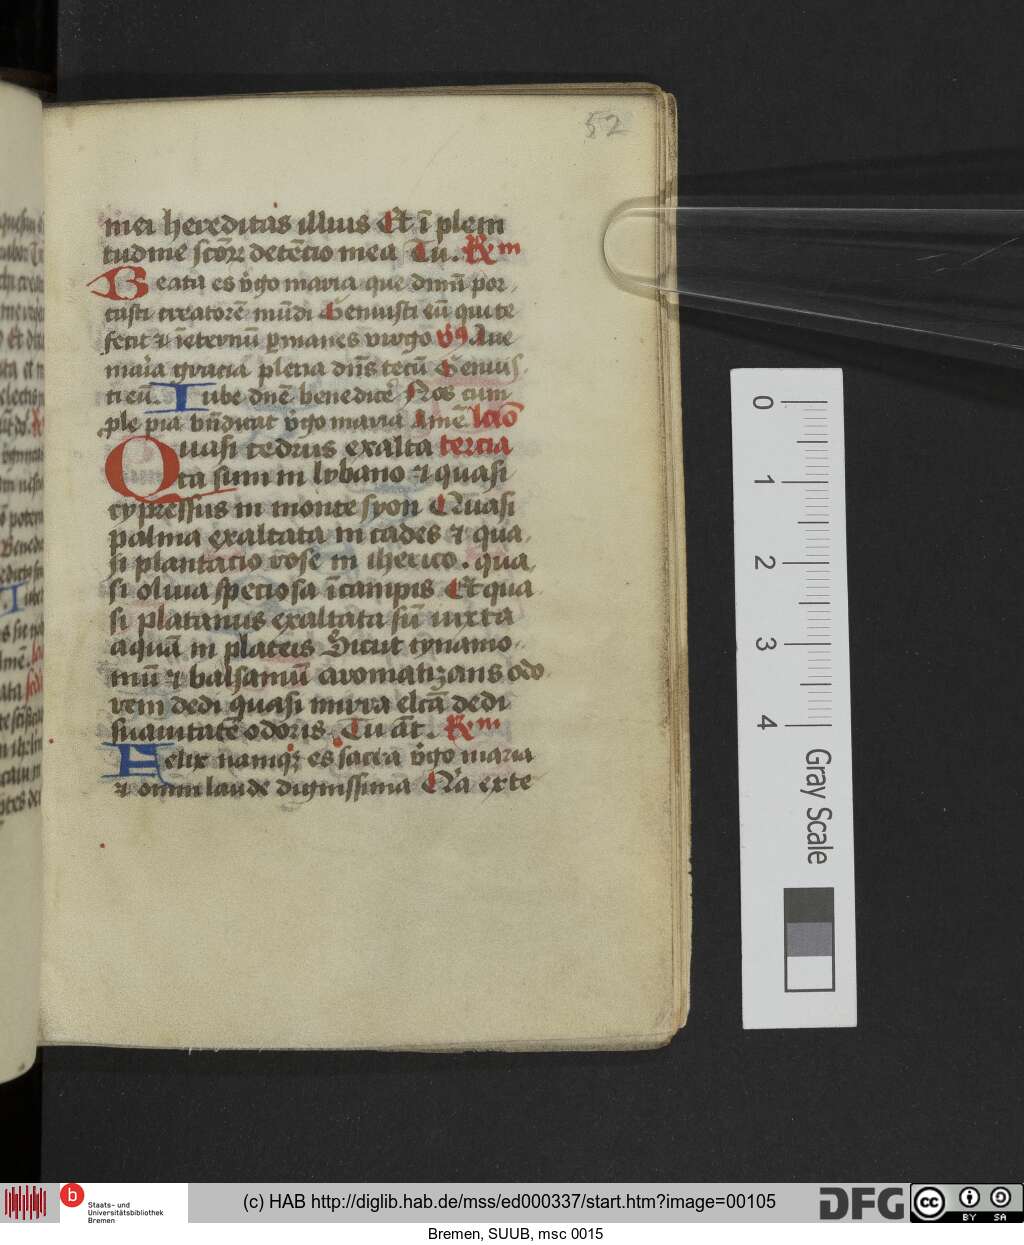 52
mei hereditas illius Et ī plem
tudine sc̄oꝝ detēcio mea Tu. ℞m
Beata es v̊go maria que dnm̄ por
tasti creatorē mūdi Genuisti eū qui te
fecit ⁊ īeternū ꝑmanes virgo v̊9 Aue
maīa gracia plena dn̄s tecū Genuis
ti eū. Iube dn̄e benedicē Nos cum
ple pia bn̄dicat v̊go maria Amē lc̄io
Quasi cedrus exalta tercia
ta sum in lybano ⁊ quasi
cypressus in monte syon Quasi
palma exaltata in cades ⁊ qua
si plantacio rose in iherico. qua
si oliua speciosa īcampis Et qua
si platanus exaltata sū iuxta
aquā in plateis Sicut cynamo
mū ⁊ balsamū aromatizans odo
rem dedi quasi mirra elc̄a dedi
suauitatē odoris Tu aūt. ℞m
Felix namqꝫ es sacra v̊go maria
⁊ omni laude dignissima Qꝛ̄a ex te
0
1
2
3
4
Gray Scale
b
Staats- und
Universitätsbibliothek
Bremen
(c) HAB http://diglib.hab.de/mss/ed000337/start.htm?image=00105
DFG
cc
BY SA
Bremen, SUUB, msc 0015